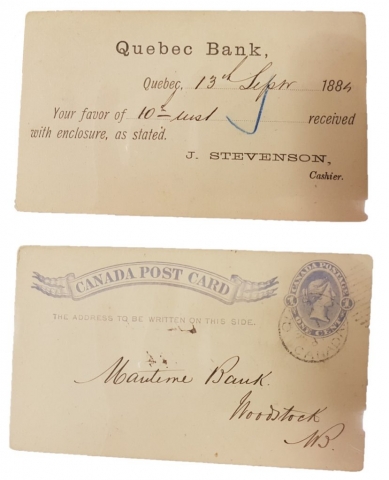 Quebec Bank,
Quebec, 13th Septr 1884
Your favor of 10th inst received
with enclosure, as stated.
J. STEVENSON,
Cashier.
CANADA POST CARD
THE ADDRESS TO BE WRITTEN ON THIS SIDE.
CANADA POSTAGE
ONE CENT
Maritime Bank.
Woodstock
NB.